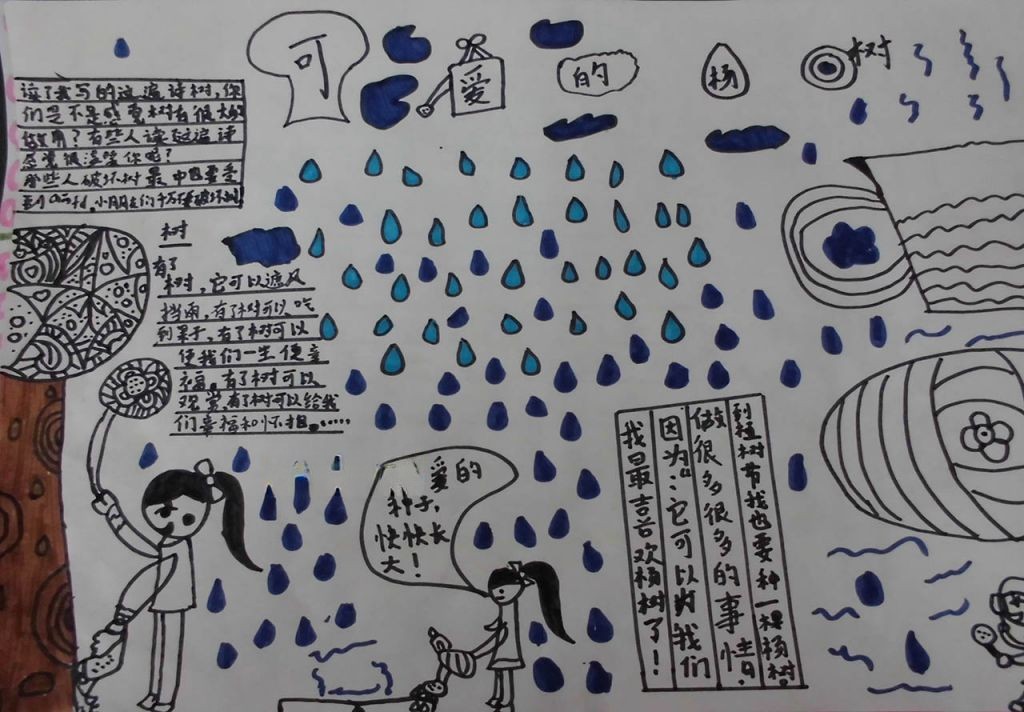 可爱的杨树
读了我写的这遍诗树,你
们是不是感觉树有很大的
效用?有些人读这遍诗
感觉很温馨你呢?
那些人破坏树最中要受
到小朋友们千万要破坏树
树
有了
树,它可以遮风
挡雨,有了树可以吃
到果子,有了树可以
使我们一生
有了树可以
观赏,有了树可以给我
们幸福和怀抱。……
爱的
种子,
快快长
大!
到植树节我也要种一棵杨树.
做很多很多的事情.
因为:它可以为我们
我曰最吉喜欢杨树了!